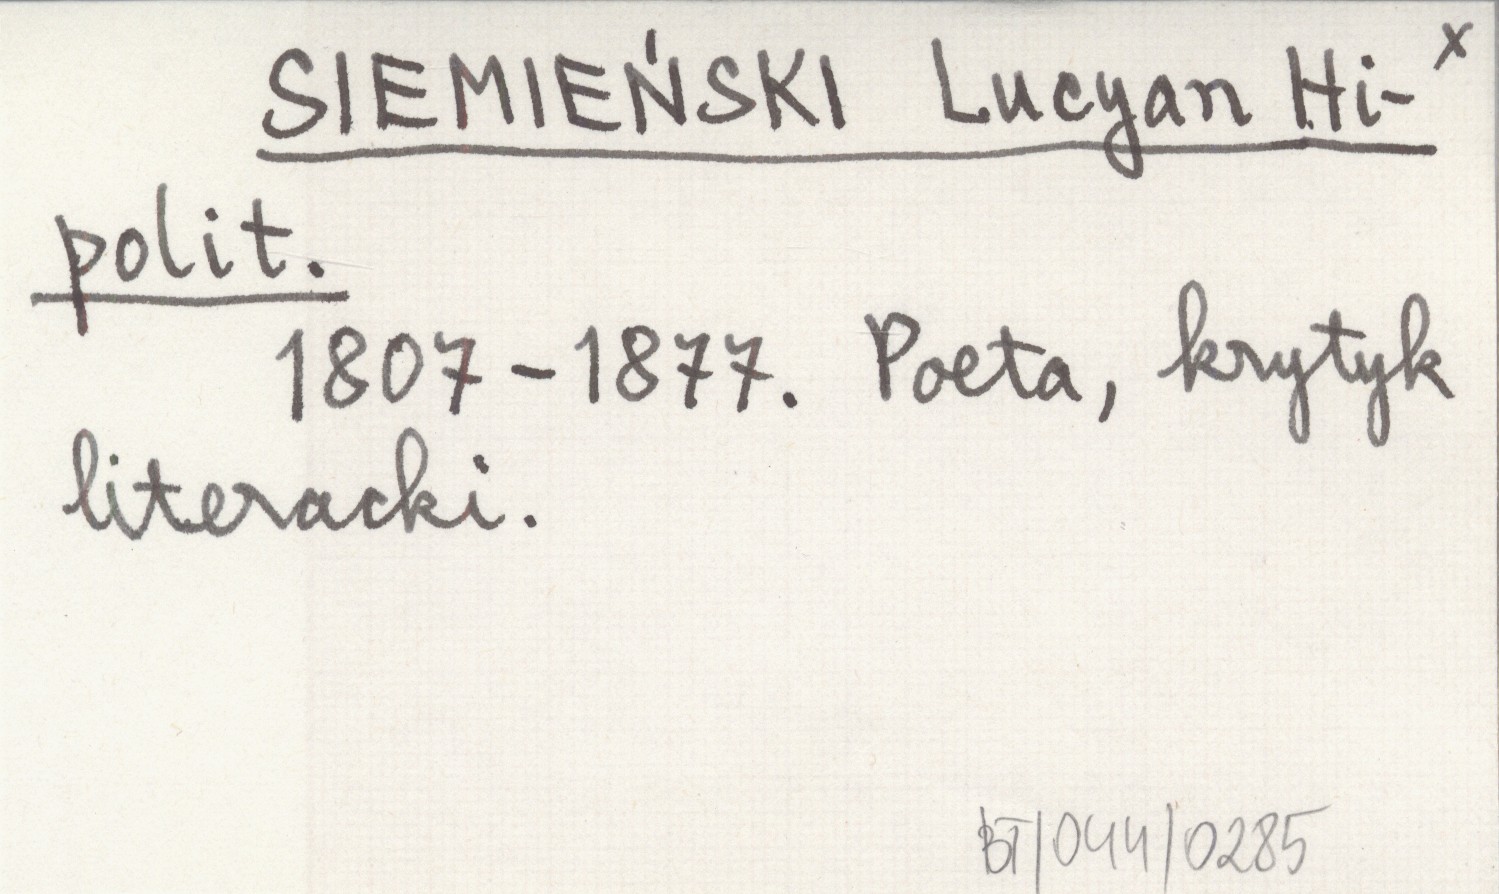 SIEMIEŃSKI Lucyan Hi- x
polit.
1807-1877. Poeta, krytyk
literacki.
BT/044/0285